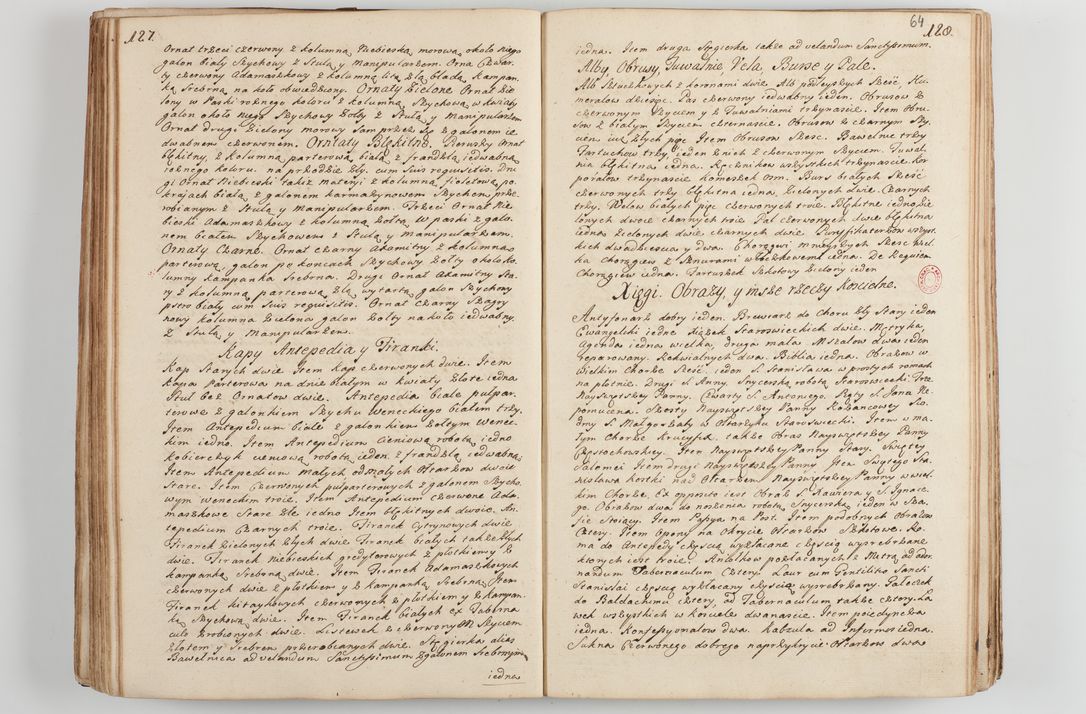 127.
Ornat trzeci czerwony z kolumną Niebieską morową około niego
galon biały Szychowy z Stułą y Manipularzem. Orna Czwar-
ty czerwony Adamaszkowy z kolumną litą złą bladą Kampan-
ką srebrną na koło obwiedziony. Ornaty Zielone Ornat Zie-
lony w Paski roznego koloru z kolumną Szychową w kwiaty
galon około niego Szychowy Zoły z Stułą y Manipularzem
Ornat drugi Zielony morowy sam przez się z galonem ie-
dwabnem czerwonem. Ornaty Błękitne. Pierwszy Ornat
błękitny, z kolumną parterową białą z frandzlą iedwabną
roznego koloru. na przodzie zły. cum suis requisitis. Dru
gi Ornat Niebieski takiż materyi z kolumną fioletową po
krajach białą z galonem karmazynowem Szychem prze-
robianym z Stułą y Manipularzem. Trzeci Ornat Nie-
bieski Adamaszkowy z kolumną żołtą w paski z galo-
nem białem Szychowem z Stułą y Manipularzem.
Ornaty Czarne. Ornat czarny Axamitny z kolumną
parterową galon po koncach Szychowy Zołty około ko-
lumny kampanka srebrna. Drugi Ornat Axamitny Sta-
ry z kolumną parterową złą wytartą galon Szychowy
pstro biały cum suis requisitis. Ornat Czarny Szagry
nowy kolumna Zielona galon Zołty na koło iedwabny
z Stułą y Manipularzem.
Kapy Antepedia y Firanki.
Kap Starych dwie Item Kap czerwonych dwie. Item
Kapa Parterowa na dnie białym w kwiaty złote iedna
Stuł bez Ornatow dwie. Antepedia białe pułpar-
terowe z galonkiem Szychu Weneckiego białem trzy.
Item Antependium białe z galonkiem Zołtym Wenec-
kim iedno. Item Antependium cieniową robotą iedno
kobierczyk cieniową robotą ieden z frandzlą iedwabną
Item Antependium małych od małych Ołtarzow dwoie
Stare. Item Czerwonych pułparterowych z galonem Szycho-
wym weneckim troie. Item Antependium czerwone Ada-
maszkowe Stare złe iedno Item błękitnych dwoie. An-
tepedium Czarnych troie. Firanek Cytrynowych dwie
Firanek Zielonych złych dwie Firanek białych także złych
dwie. Firanek niebieskich gredyturowych z plotkiem y z
kampanką Srebrną dwie. Item Firanek Adamaszkowych
czerwonych dwie z plotkiem y z kampanką Srebrną Item
Firanek kitaykowych czerwonych z plotkiem y z kampan-
ką Szychową dwie. Item Firanek białych ex Taberna
culo zrobionych dwie. Listewek z czerwonym Szyciem
złotem y srebrem przerobianych dwie. Stęgierka alias
Bawełnica ad velandum Sanctissimum z galonem srebrnym
iedna
64
128.
iedna. Item druga Stęgierka także ad velandum Sanctissimum.
Alby, Obrusy, Tuwalnie, Vela, Bursę y Palę.
Alb Sztuczkowych z koronami dwie Alb podleyszych Sześć Hu-
meralow dziesięć. Pas czerwony iedwabny ieden. Obrusow z
czerwonym Szyciem y z Tuwalniami trzynascie. Item Obru-
sow z białym Szyciem czternascie. Obrusow z czarnym Szy-
ciem iuz złych pięc Item Obrusow Szesc. Bawelnic trzy
Fartuchow trzy ieden z nich z czerwonym Szyciem. Tuwal-
nia błękitna iedna. Ręcznikow wszystkich trzynascie Kor
poralow trzynascie komeszek osm. Burs białych Sześć
czerwonych trzy błękitna iedna, Zielonych dwie Czarnych
trzy. Welow białych pięc czerwonych troie. Błękitne iedno Zie-
lonych dwoie czarnych troie Pal czerwonych dwie błękitna
iedna Zielonych dwie czarnych dwie Puryfikaterzow wszyst-
kich dwadziescia y dwa. Choręgwi mnieyszych Szesc wiel-
ka chorągiew z Sznurami włoczkowemi iedna. De Requiem
Chorągiew iedna. Fartuszek Szkotowy Zielony ieden
Xięgi. Obrazy, y insze rzeczy Koscielne.
Antyfonarz dobry ieden. Brewiarz do Choru zły Stary ieden
Ewangeliki iedne Xiążek Staroswieckich dwie. Metryka,
Agenda iedna wielka, druga mała Mszałow dwa ieden
reparowany. Rekwialnych dwa. Biblia iedna. Obrazow w
Wielkim Chorze Szesc. ieden S. Stanisława w prostych ramach
na płotnie. Drugi S. Anny. Snycerską robotą Staroswiecki. Trze.
Nayswiętszey Panny. Czwarty S. Antoniego. Piąty S. Jana Ne-
pomucena. Szosty Nayswiętszey Panny Rożancowey Sio-
dmy S. Małgorzaty w Ołtarzyku Staroswiecki. Item w ma-
łym Chorze Krucyfix, także Obraz Nayswiętszey Panny
Częstochowskiey Item Nayswiętszey Panny Stary. Swiętey
Salomei Item drugi Nayswiętszey Panny Item Swiętego Sta-
nisława Kostki nad Ołtarzem Nayswiętszey Panny w wiel-
kim Chorze, Ex opposito iest Obraz S. Xawiera y S. Ignace-
go. Obrazow dwa do noszenia robotą Snycerską ieden w Sza-
fie Stoiący. Item Passya na Post. Item podobnych Obrazow
Cztery. Item Opony na Okrycie Ołtarzow Szkłotowe. Ra-
ma do Antepedy częscią wyzłacane częscią wysrebrzane
ktorych iest troie. Aniołkow pozłacanych z Mitrą ad ador
nandum Tabernaculum Cztery. Laur cum Gentilitio Sancti
Stanislai częscią wyzłacany częscią wysrebrzany. Paleczek
do Baldachimu cztery, ad Tabernaculum także cztery. Ła
wek wszystkich w kosciele dwanascie. Item poiedynczą
iedna. Konfessyonałow dwa. Kabzula ad Infirmos iedna.
Sukna Czerwonego dobrego na przykrycie Ołtarzow dwa